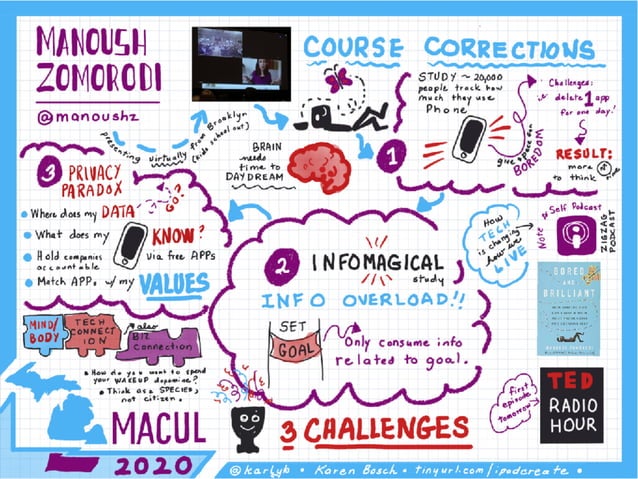 MANOUSH
ZOMORODI
@manoushz
presenting virtually from Brooklyn
(kids school out)
COURSE CORRECTIONS
STUDY ~ 20,000
people track how
much they use
Phone
1
give space for
BOREDOM
Challenged:
delete 1 app
for one day!
RESULT:
more time
to think
BRAIN
needs
time to
DAYDREAM
3 PRIVACY
PARADOX
Where does my DATA
GO?
What does my
KNOW?
Hold companies
accountable
via free APPs
Match APPs w/ my VALUES
2 INFOMAGICAL
study
INFO OVERLOAD!!
SET
GOAL
Only consume info
related to goal.
How
TECH
is changing
how we
LIVE
Note to Self Podcast
ZIGZAG
PODCAST
BORED
AND
BRILLIANT
MANOUSH ZOMORODI
MIND/
BODY
TECH
CONNECT
ION
also
BIZ
Connection
How do you want to spend
your WAKEUP dopamine?
Think as a SPECIES,
not citizen.
3 CHALLENGES
first
episode
tomorrow
TED
RADIO
HOUR
MACUL
2020
@karlyb • Karen Bosch • tinyurl.com/ipadcreate •